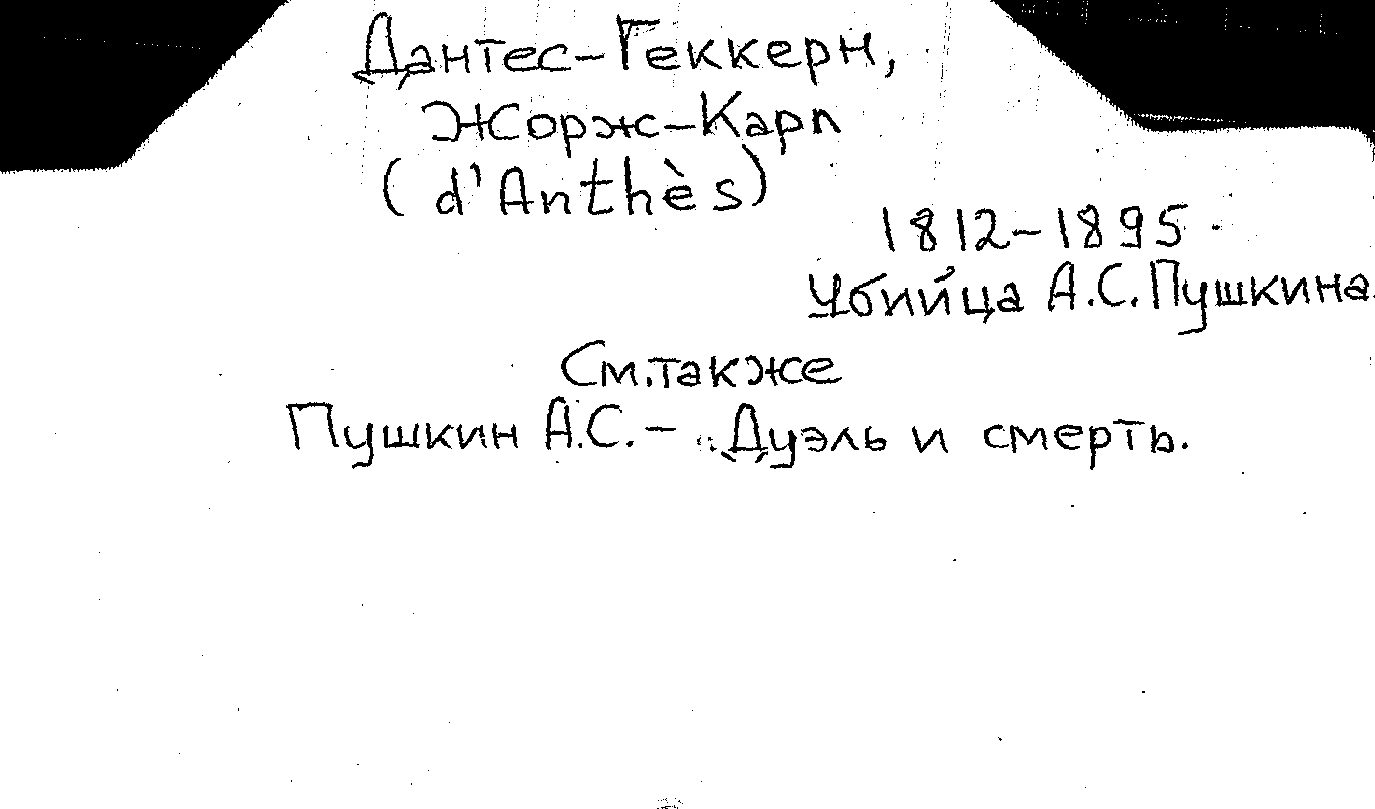 Дантес-Геккерн,
Жорж-Карл
(d'Anthès)
1812-1895.
Убийца А.С.Пушкина.
См.также
Пушкин А.С.- Дуэль и смерть.